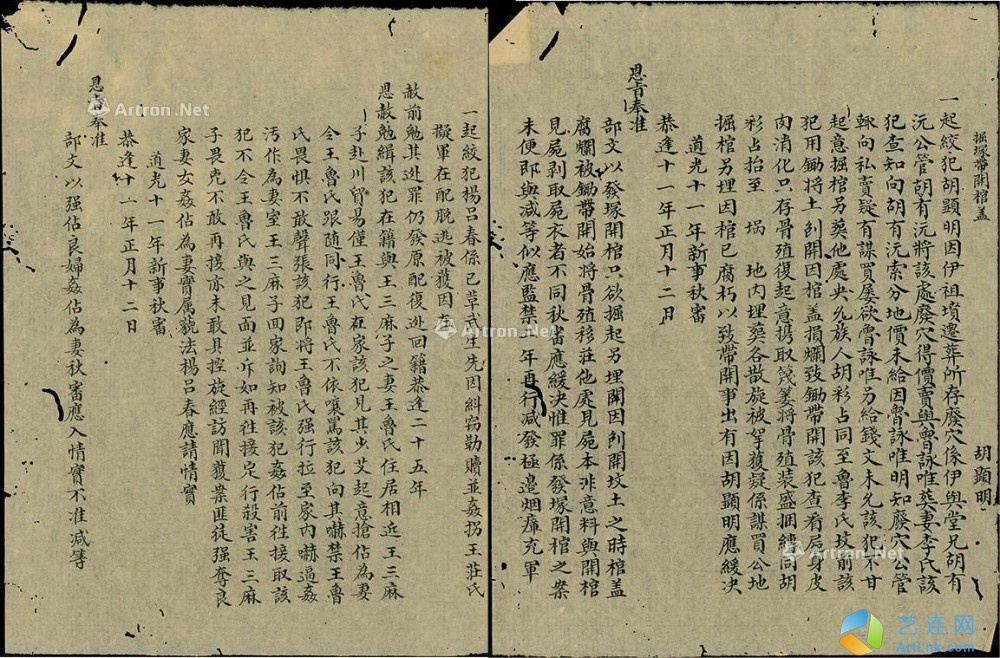 掘塚帶開棺蓋
胡顯明
一起絞犯胡顯明因伊祖墳遷葬所存廢穴係伊與堂兄胡有
沅公管胡有沅將該處廢穴得價賣與曾詠唯葬妻李氏該
犯查知向胡有沅索分地價未給因曾詠唯明知廢穴公管
輙向私賣疑有謀買屡欲曾詠唯另給錢文未允該犯不甘
起意掘棺另葬他處央允族人胡彩占同至魯李氏坟前該
犯用鋤將土刨開因棺盖損爛致鋤帶開該犯查看屍身皮
肉消化只存骨殖復起意携取篾簍將骨殖装盛捆縛同胡
彩占抬至 塥 地内埋葬各散旋被拏獲疑係謀買公地
掘棺另埋因棺已腐朽以致帶開事出有因胡顯明應緩决
道光十一年新事秋審
恭逢十一年正月十二日
恩旨奉准
部文以發塚開棺只欲掘起另埋開因刨開坟土之時棺盖
腐爛被鋤帶開始将骨殖移莊他處見屍本非意料與開棺
見屍剥取屍衣者不同秋審應緩决惟罪係發塚開棺之案
未便即與減等似應監禁二年再行減發極邉烟瘴充軍
一起絞犯楊呂春係已革武生先因糾窃勒贖並姦拐王莊氏
擬軍在配脫逃被獲因在
赦前勉其逃罪仍發原配復逃回籍恭逢二十五年
恩赦勉緝該犯在籍與王三麻子之妻王魯氏住居相近王三麻
子赴川貿易僅王魯氏在家該犯見其少艾起意搶佔為妻
令王魯氏跟随同行王魯氏不依嚷罵該犯向其嚇禁王魯
氏畏惧不敢聲張該犯即將王魯氏强行拉至家内嚇逼姦
污作為妻室王三麻子回家詢知被該犯姦佔前往接取該
犯不令王魯氏與之見面並斥如再徃接定行殺害王三麻
子畏兇不敢再接亦未敢具控旋經訪聞獲案匪徒强奪良
家妻女姦佔為妻實属藐法楊呂春應請情實
道光十一年新事秋審
恭逢十一年正月十二日
恩旨奉准
部文以强佔良婦姦佔為妻秋審應入情實不准減等
Artron.Net
Artron.Net
Artron.Net
Artron.Net
艺连网
ArtLnk.com